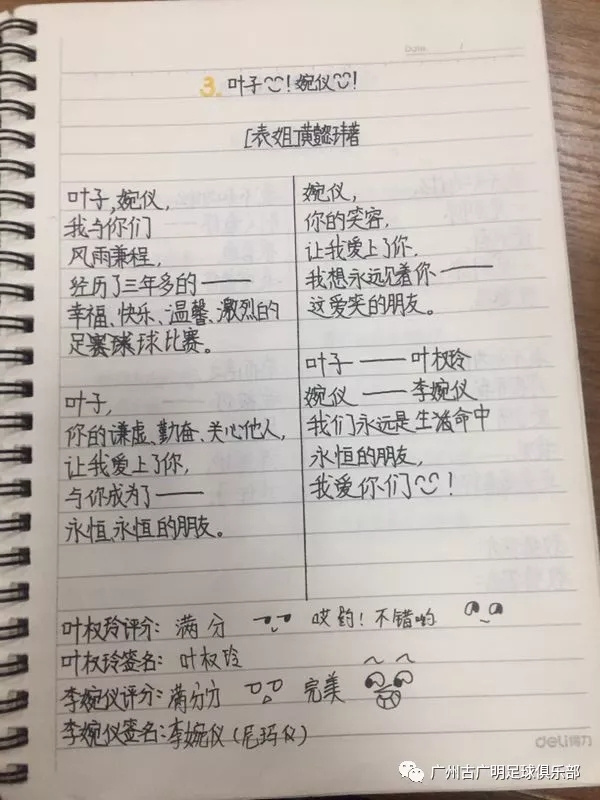 Date /
3. 叶子!婉仪!
[表姐]黄懿玮著
叶子,婉仪,
我与你们
风雨兼程,
经历了三年多的——
幸福、快乐、温馨、激烈的
足赛球比赛。
叶子,
你的谦虚、勤奋、关心他人,
让我爱上了你,
与你成为了——
永恒,永恒的朋友。
婉仪,
你的笑容,
让我爱上了你.
我想永远见着你——
这爱笑的朋友。
叶子——叶权玲
婉仪——李婉仪
我们永远是生活命中
永恒的朋友,
我爱你们!
叶权玲评分:满分 哎哟!不错哟
叶权玲签名:叶权玲
李婉仪评分:满分分 完美
李婉仪签名:李婉仪(尼玛仪)
deli得力
广州古广明足球俱乐部